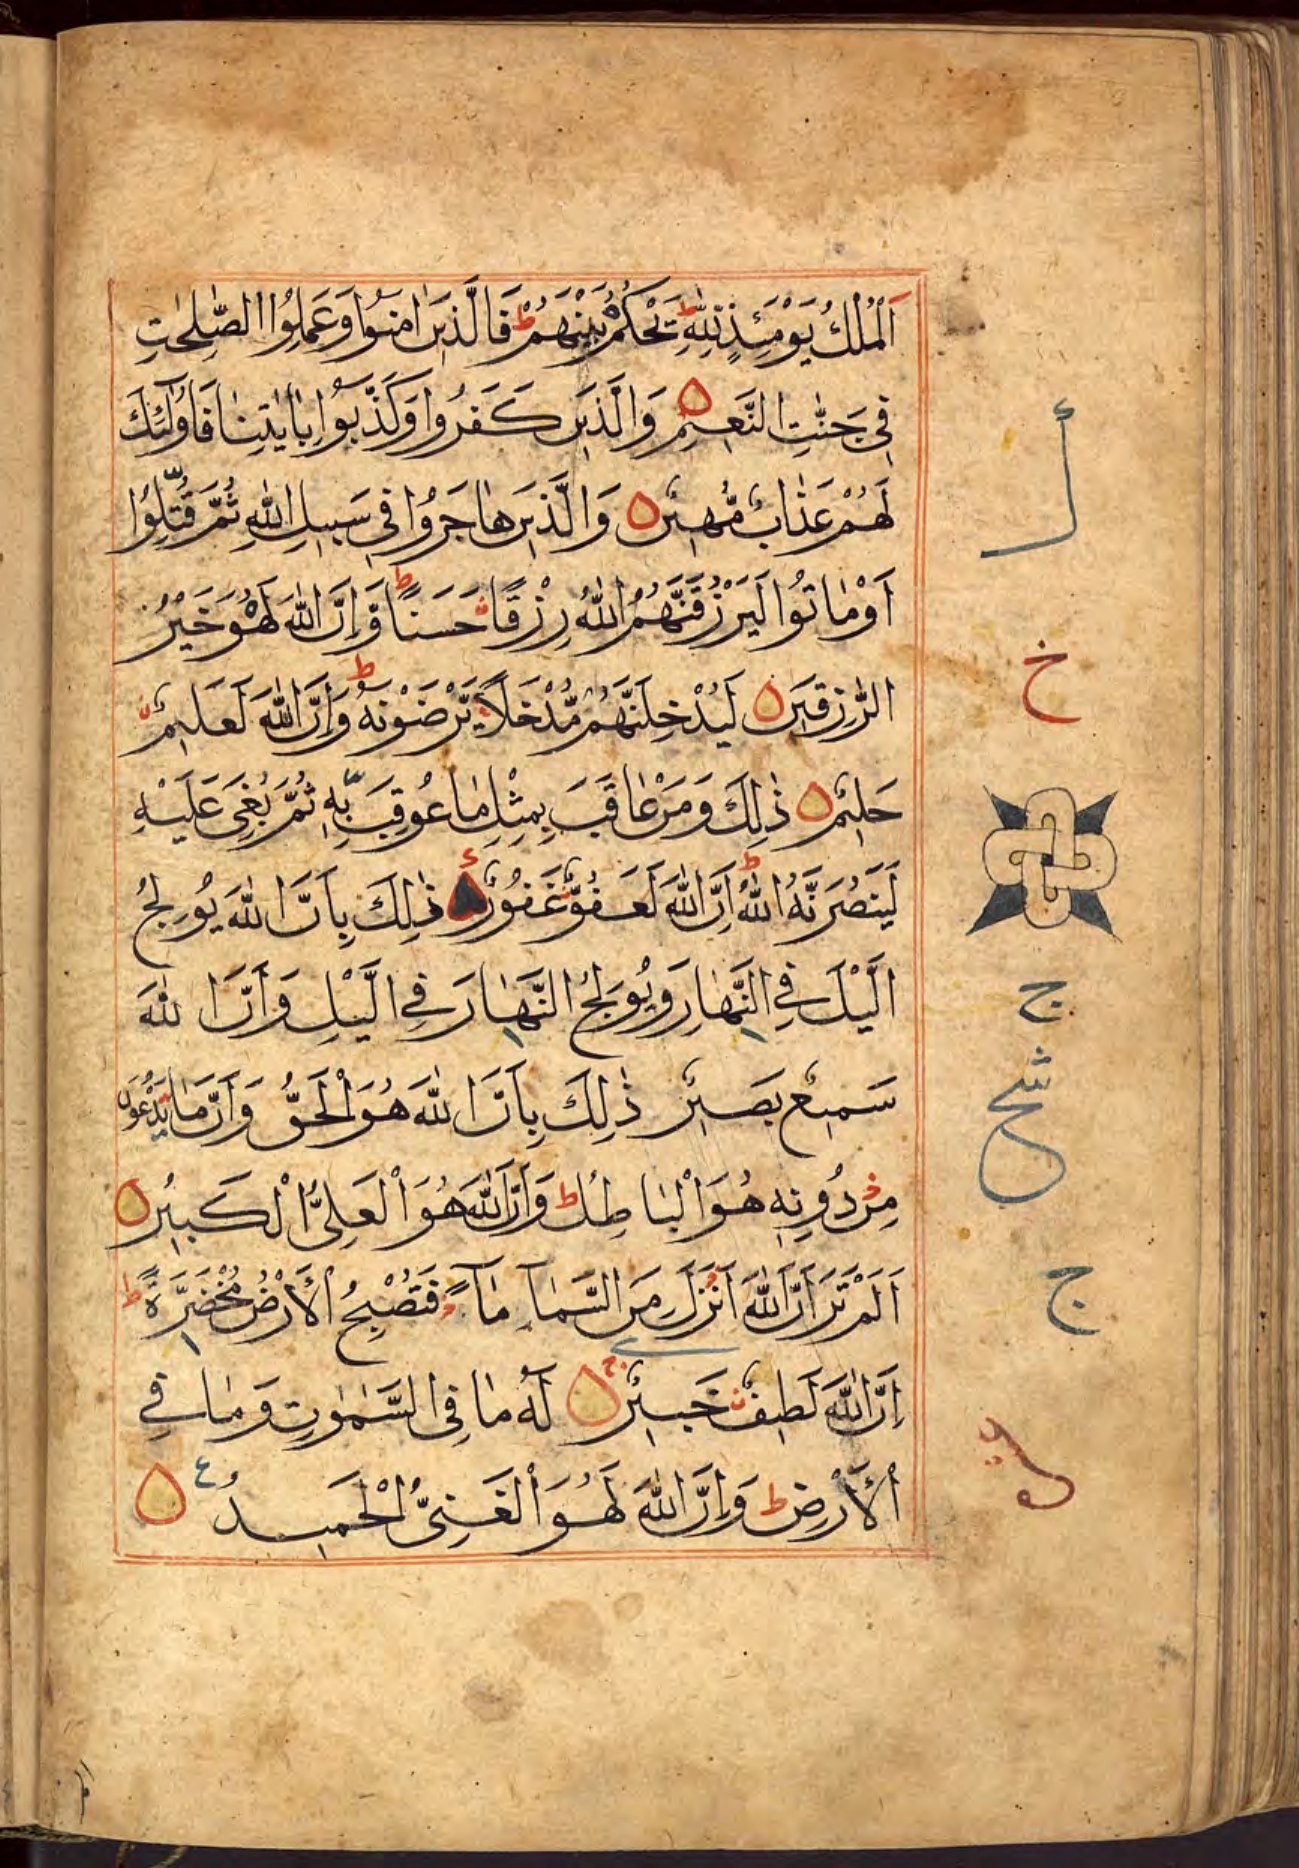 اَلْمُلْكُ يَوْمَئِذٍ لِلّٰهِ ط يَحْكُمُ بَيْنَهُمْ ط فَالَّذِيْنَ اٰمَنُوْا وَعَمِلُوا الصّٰلِحٰتِ
فِيْ جَنّٰتِ النَّعِيْمِ وَالَّذِيْنَ كَفَرُوْا وَكَذَّبُوْا بِاٰيٰتِنَا فَاُولٰٓئِكَ
لَهُمْ عَذَابٌ مُّهِيْنٌ وَالَّذِيْنَ هَاجَرُوْا فِيْ سَبِيْلِ اللّٰهِ ثُمَّ قُتِلُوْا
اَوْ مَاتُوْا لَيَرْزُقَنَّهُمُ اللّٰهُ رِزْقًا حَسَنًا ط وَّاِنَّ اللّٰهَ لَهُوَ خَيْرُ
الرّٰزِقِيْنَ لَيُدْخِلَنَّهُمْ مُّدْخَلًا يَّرْضَوْنَهٗ ط وَاِنَّ اللّٰهَ لَعَلِيْمٌ
حَلِيْمٌ ذٰلِكَ وَمَنْ عَاقَبَ بِمِثْلِ مَا عُوْقِبَ بِهٖ ثُمَّ بُغِيَ عَلَيْهِ
لَيَنْصُرَنَّهُ اللّٰهُ ط اِنَّ اللّٰهَ لَعَفُوٌّ غَفُوْرٌ ذٰلِكَ بِاَنَّ اللّٰهَ يُوْلِجُ
الَّيْلَ فِي النَّهَارِ وَيُوْلِجُ النَّهَارَ فِي الَّيْلِ وَاَنَّ اللّٰهَ
سَمِيْعٌ بَصِيْرٌ ذٰلِكَ بِاَنَّ اللّٰهَ هُوَ الْحَقُّ وَاَنَّ مَا يَدْعُوْنَ
مِنْ دُوْنِهٖ هُوَ الْبَاطِلُ ط وَاَنَّ اللّٰهَ هُوَ الْعَلِيُّ الْكَبِيْرُ
اَلَمْ تَرَ اَنَّ اللّٰهَ اَنْزَلَ مِنَ السَّمَآءِ مَآءً فَتُصْبِحُ الْاَرْضُ مُخْضَرَّةً ط
اِنَّ اللّٰهَ لَطِيْفٌ خَبِيْرٌ ج لَهٗ مَا فِي السَّمٰوٰتِ وَمَا فِي
الْاَرْضِ ط وَاِنَّ اللّٰهَ لَهُوَ الْغَنِيُّ الْحَمِيْدُ ع
خ
ج
ج